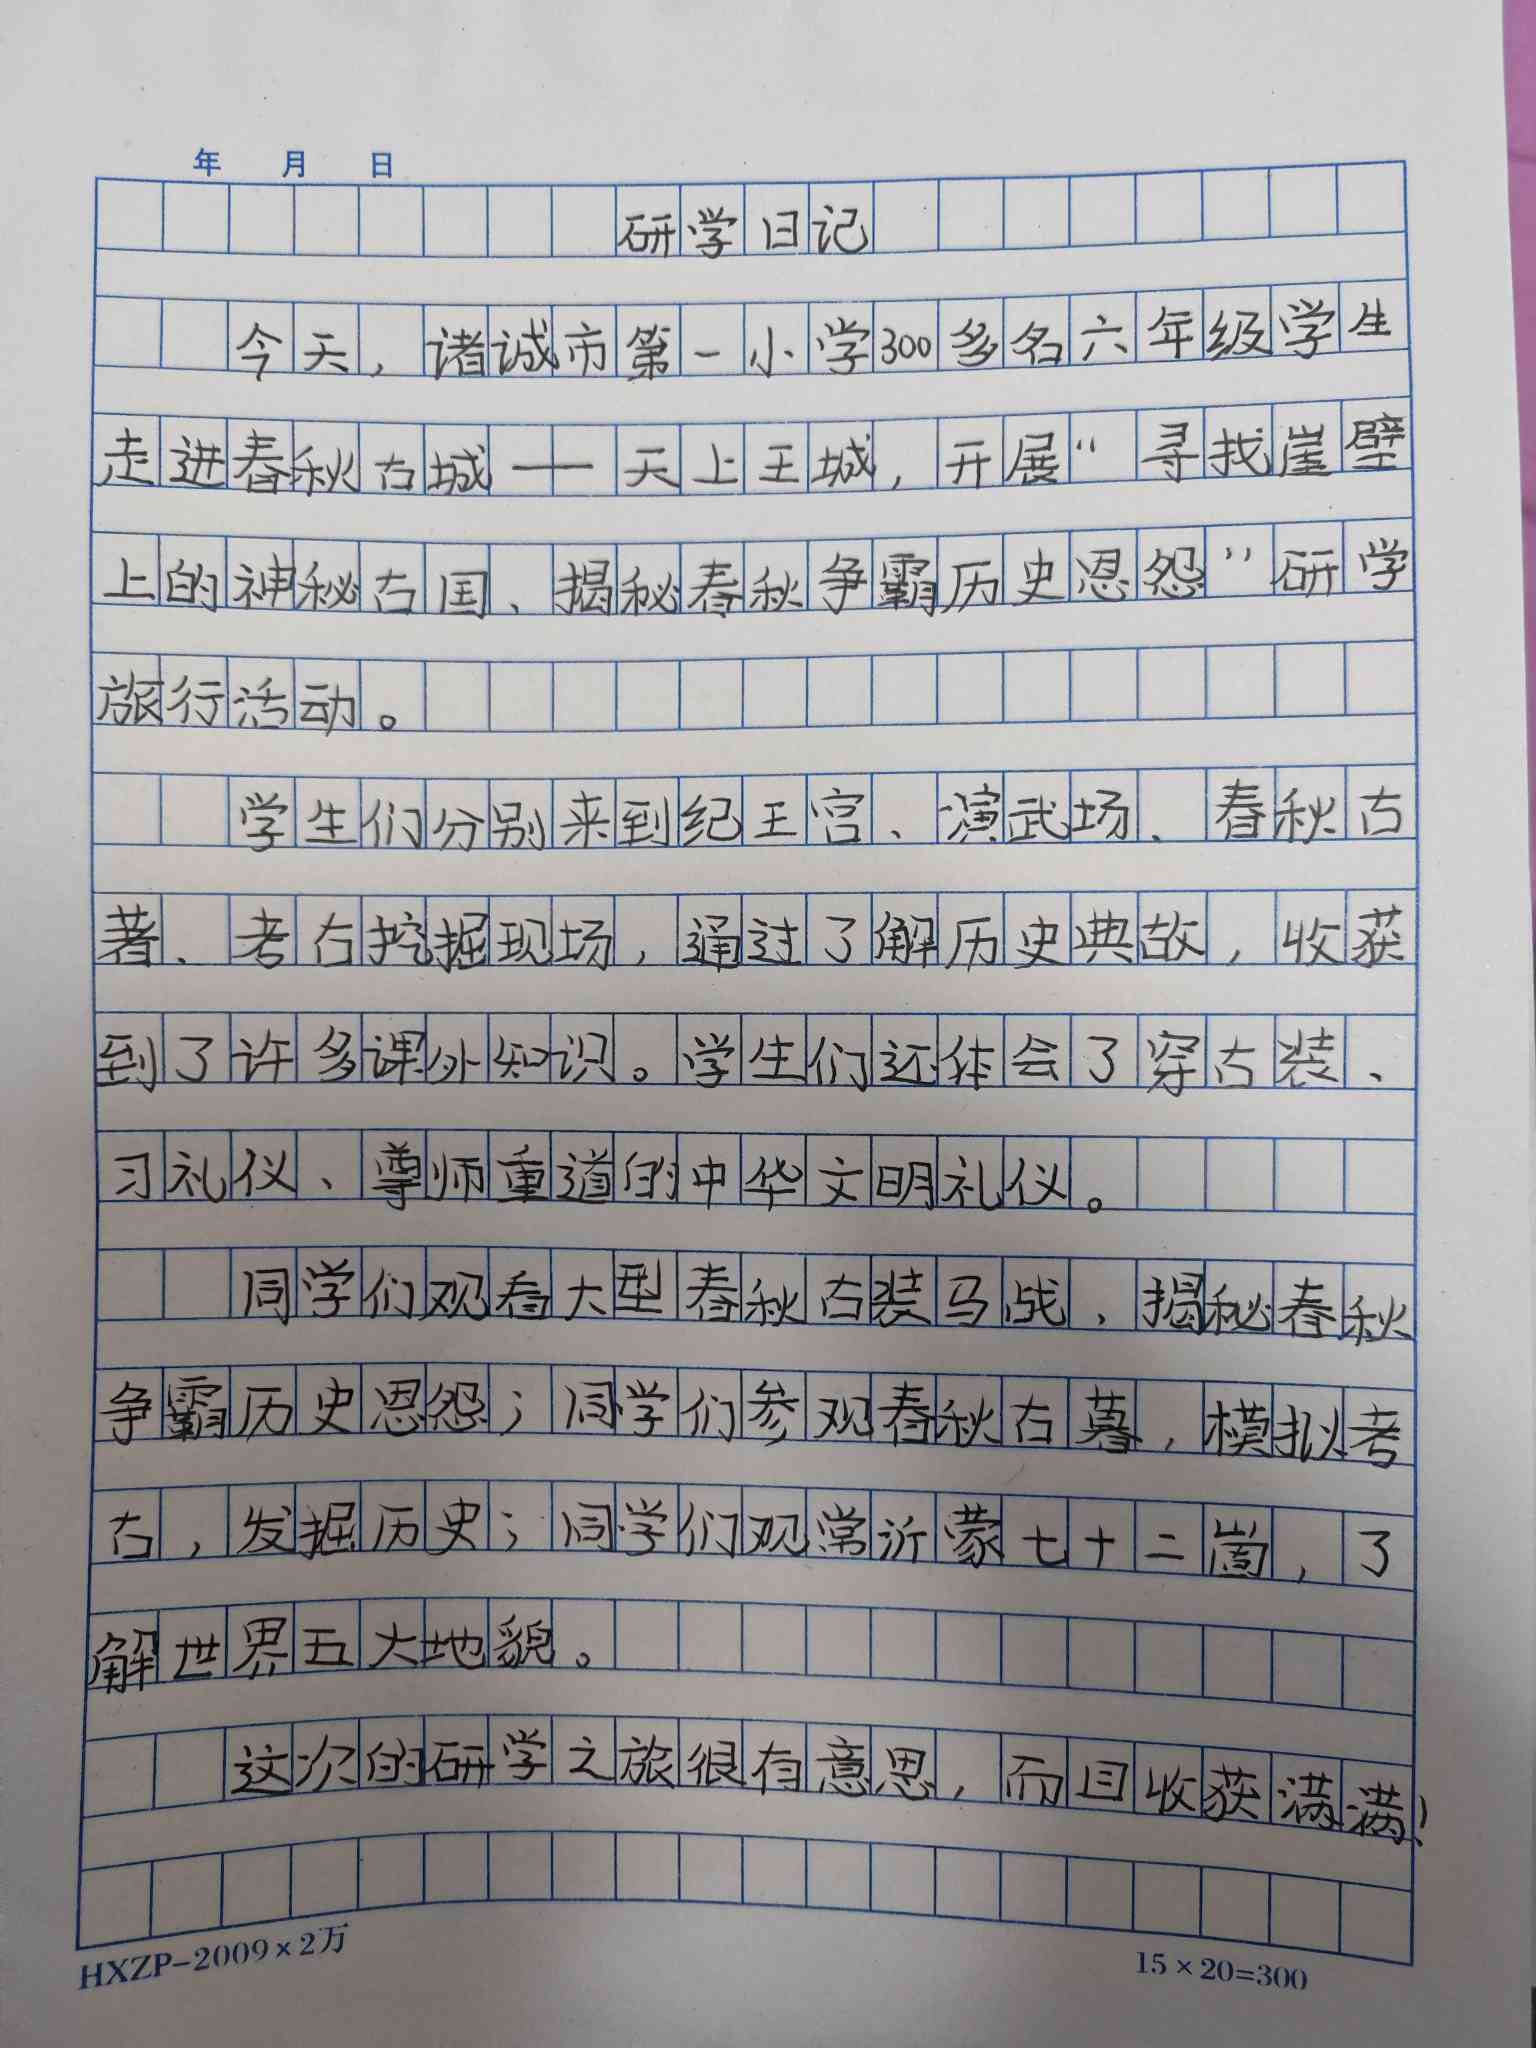 年 月 日
研学日记
今天，诸诚市第一小学300多名六年级学生
走进春秋古城——天上王城，开展“寻找崖壁
上的神秘古国、揭秘春秋争霸历史恩怨”研学
旅行活动。
学生们分别来到纪王宫、演武场、春秋古
著、考古挖掘现场，通过了解历史典故，收获
到了许多课外知识。学生们还体会了穿古装、
习礼仪、尊师重道的中华文明礼仪。
同学们观看大型春秋古装马战，揭秘春秋
争霸历史恩怨；同学们参观春秋古墓，模拟考
古，发掘历史；同学们观常沂蒙七十二崮，了
解世界五大地貌。
这次的研学之旅很有意思，而且收获满满！
HXZP-2009×2万
15×20=300